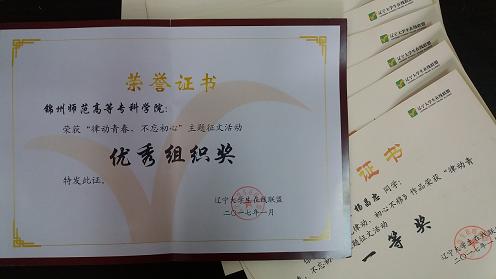 荣誉证书
锦州师范高等专科学院:
荣获“律动青春、不忘初心”主题征文活动
优秀组织奖
特发此证。
辽宁大学生在线联盟
二〇一七年一月
辽宁大学生在线联盟
辽宁大学生在线联盟
辽宁大学生在线联盟
辽宁大学生在线联盟
辽宁大学生在线联盟
证书
同学:
律动、初心不移》作品荣获“律动青
主题征文活动
一等奖
辽宁大学生在线联盟
二〇一七年一月